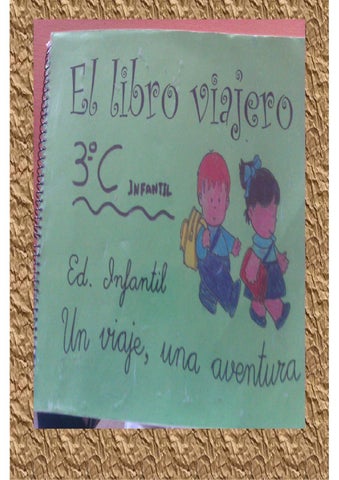 El libro viajero
3ºC INFANTIL
Ed. Infantil
Un viaje, una aventura